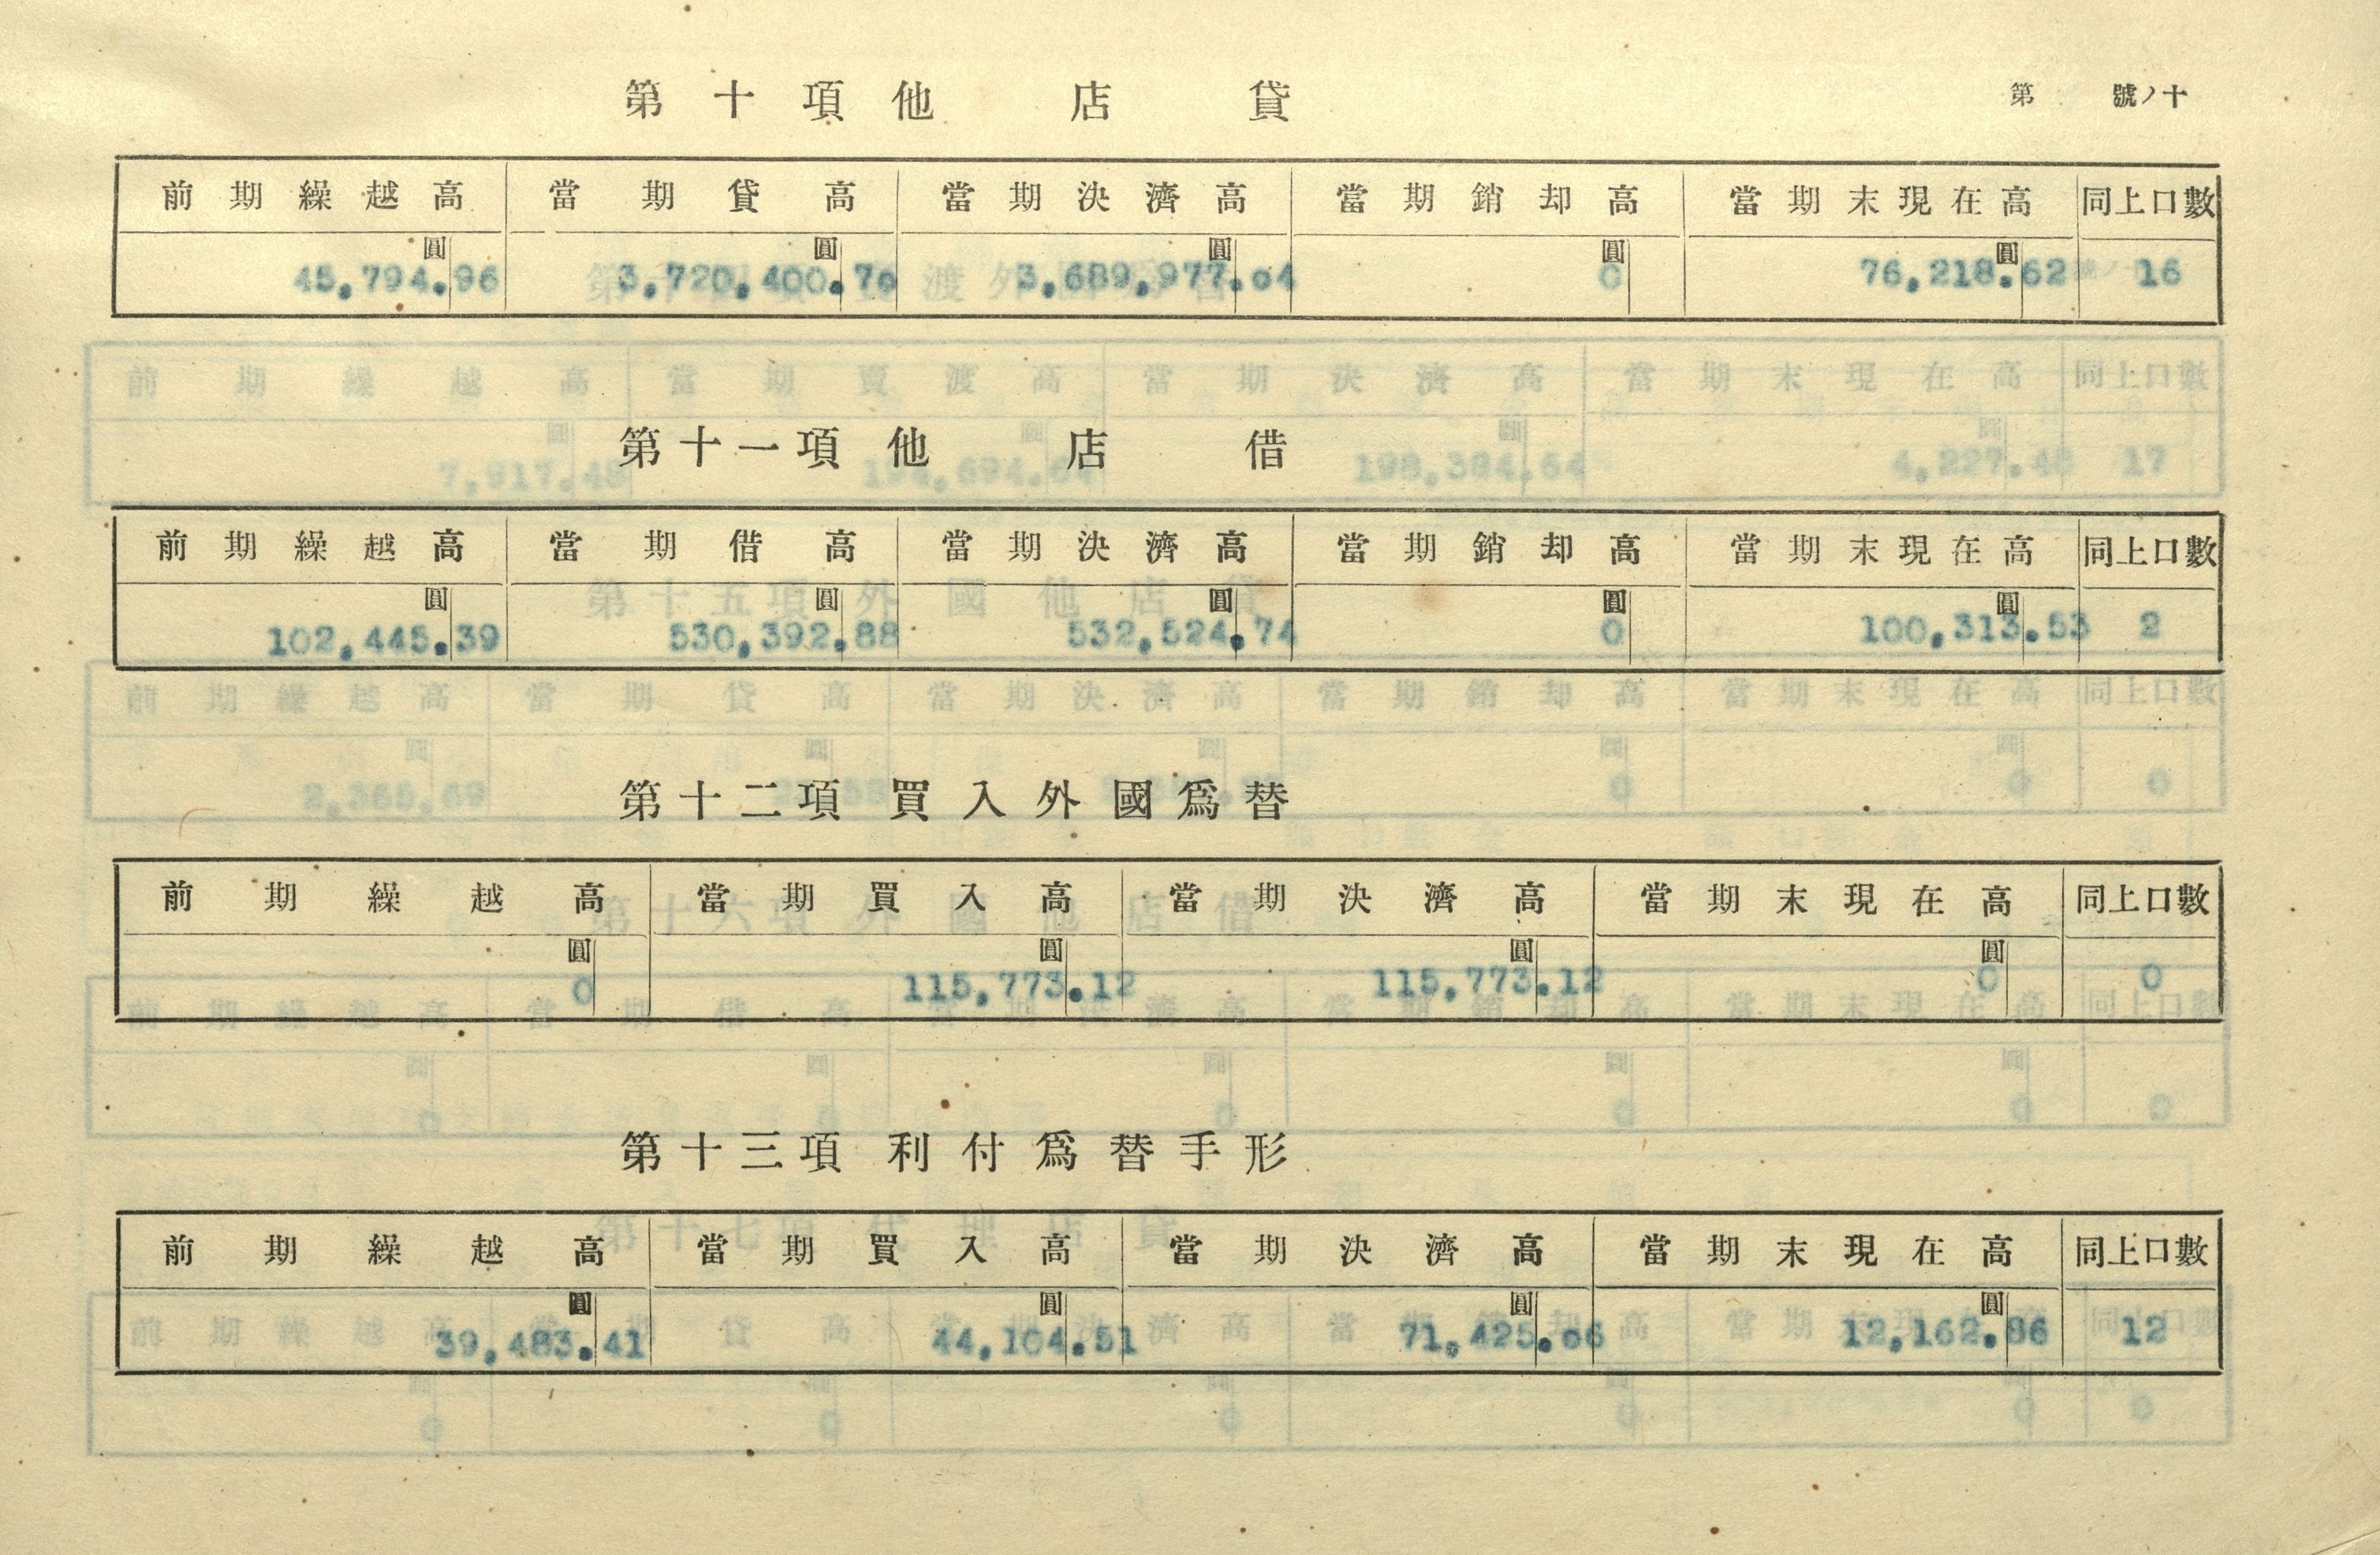 第　號ノ十
第十項 他店貸
前期繰越高 當期貸高 當期決濟高 當期銷却高 當期末現在高 同上口數
圓 圓 圓 圓 圓
45,794.96 3,720,400.70 3,689,977.04 0 76,218.62 16
第十一項 他店借
前期繰越高 當期借高 當期決濟高 當期銷却高 當期末現在高 同上口數
圓 圓 圓 圓 圓
102,445.39 530,392.88 532,524.74 0 100,313.53 2
第十二項 買入外國爲替
前期繰越高 當期買入高 當期決濟高 當期末現在高 同上口數
圓 圓 圓 圓
0 115,773.12 115,773.12 0 0
第十三項 利付爲替手形
前期繰越高 當期買入高 當期決濟高 當期末現在高 同上口數
圓 圓 圓 圓
39,483.41 44,104.51 71,425.06 12,162.86 12